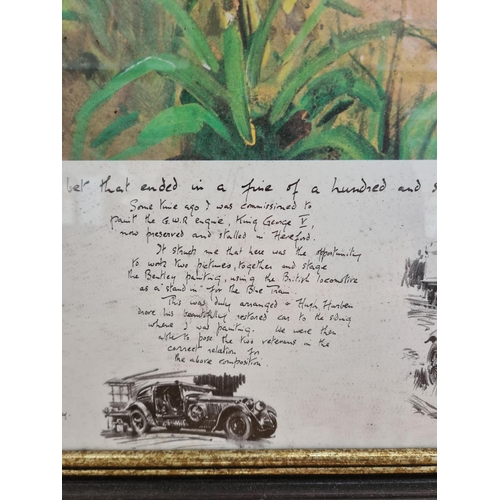 bet that ended in a fine of a hundred and s
Some time ago I was commissioned to
paint the G.W.R. engine, King George V,
now preserved and stabled in Hereford.
It struck me that here was the opportunity
to work two pictures, together and stage
the Bentley painting, using the British locomotive
as a 'stand in' for the Blue Train.
This was duly arranged & Hugh Harben
drove his beautifully restored car to the siding
where I was painting. We were then
able to pose the two veterans in the
correct relation for
the above composition.